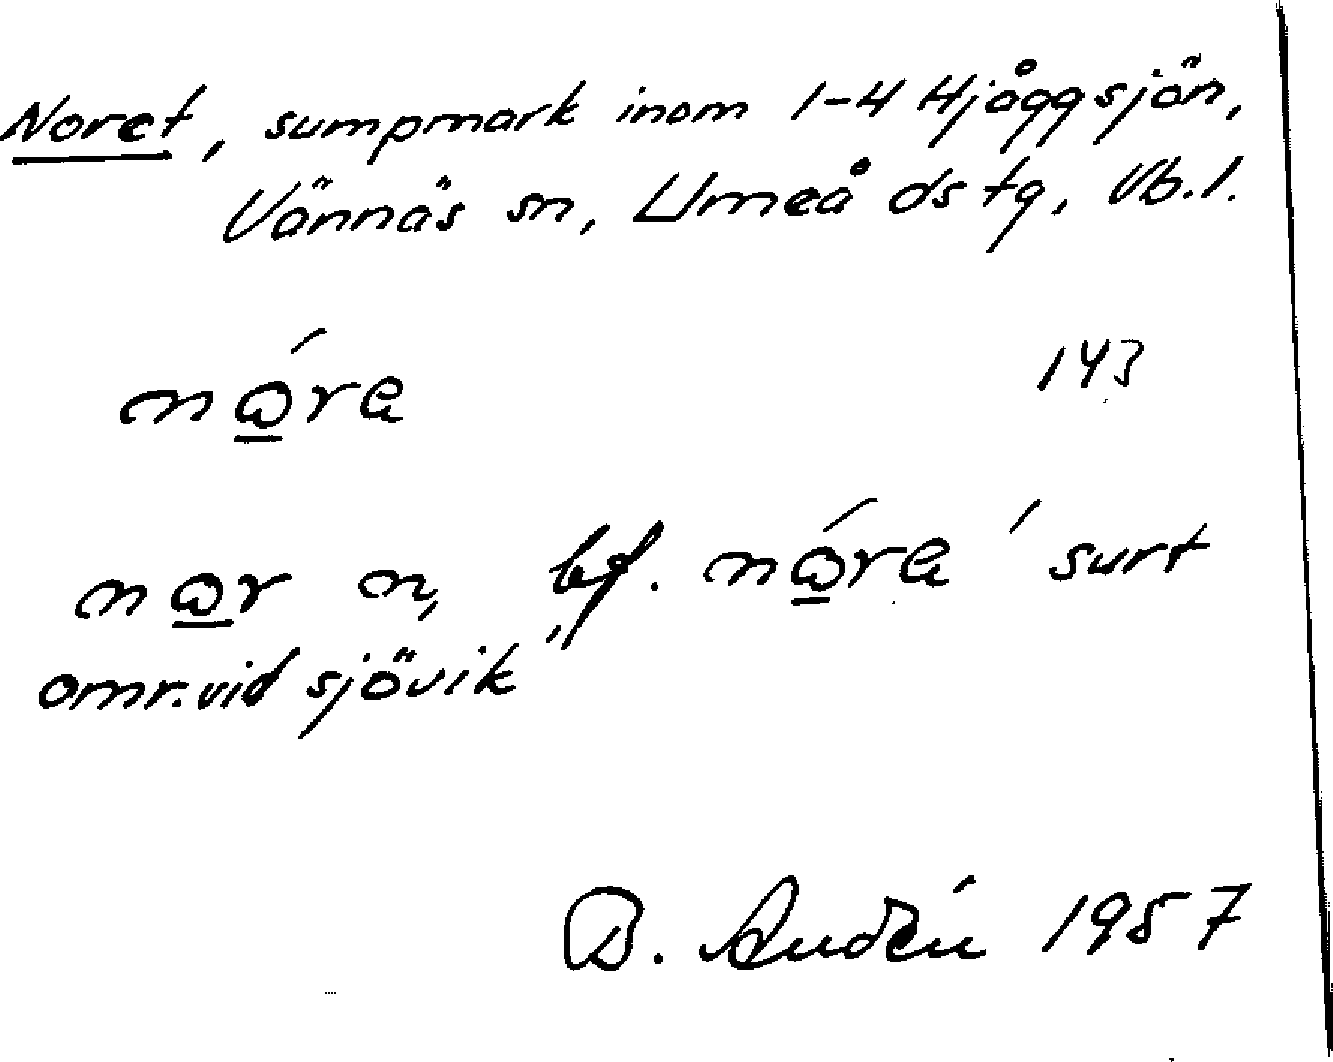 Noret, sumpmark inom 1-4 Hjåggsjön,
Vännäs sn, Umeå ds tg, Vb.l.
143
surt
omr. vid sjövik"
B. Audén 1957